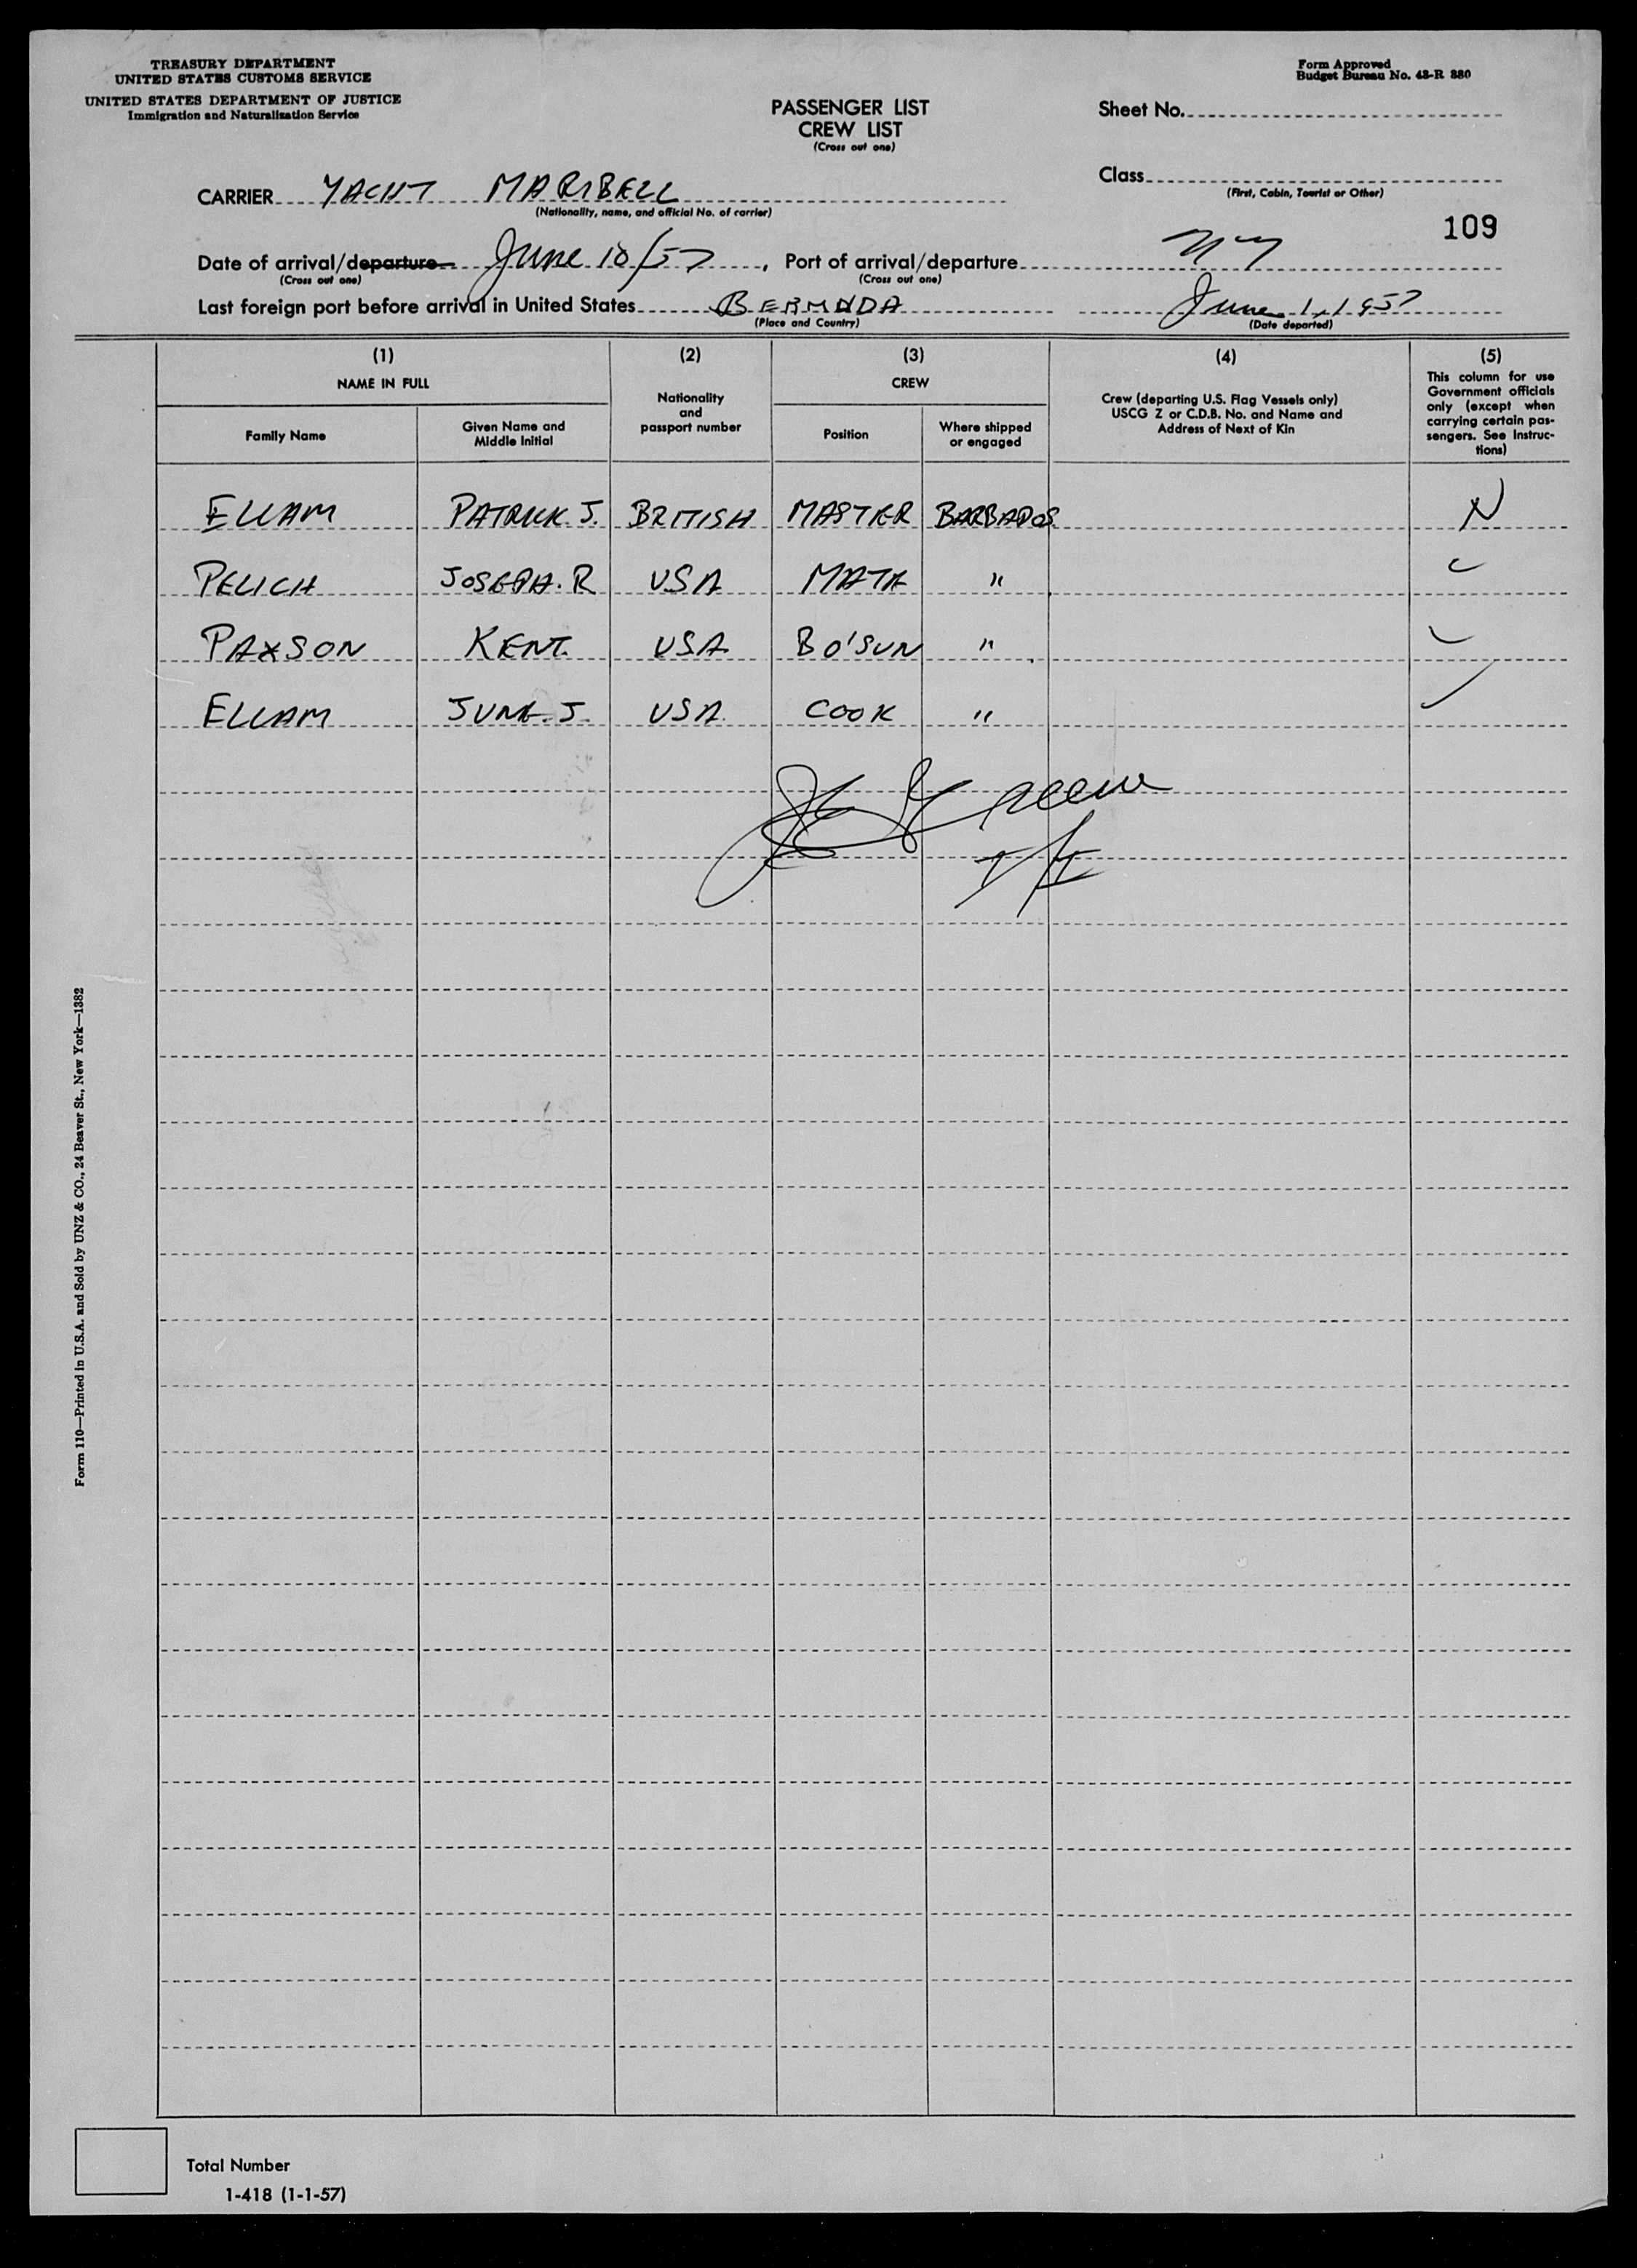 TREASURY DEPARTMENT
UNITED STATES CUSTOMS SERVICE
UNITED STATES DEPARTMENT OF JUSTICE
Immigration and Naturalization Service
Form Approved
Budget Bureau No. 43-R 380
PASSENGER LIST
CREW LIST
(Cross out one)
Sheet No.
Class
(First, Cabin, Tourist or Other)
CARRIER YACHT MARIBELL
(Nationality, name, and official No. of carrier)
109
Date of arrival/departure June 10/57, Port of arrival/departure NY
(Cross out one) (Cross out one)
Last foreign port before arrival in United States BERMUDA June 1, 1957
(Place and Country) (Date departed)
(1) (2) (3) (4) (5)
NAME IN FULL
Family Name
Given Name and
Middle Initial
Nationality
and
passport number
CREW
Position
Where shipped
or engaged
Crew (departing U.S. Flag Vessels only)
USCG Z or C.D.B. No. and Name and
Address of Next of Kin
This column for use
Government officials
only (except when
carrying certain pas-
sengers. See Instruc-
tions)
ELLAM PATRICK J. BRITISH MASTER BARBADOS
PELICH JOSEPH. R USA MATE "
PAXSON KENT. USA BO'SUN "
ELLAM JUNE. J. USA COOK "
Form 110—Printed in U.S.A. and Sold by UNZ & CO., 24 Beaver St., New York—1382
Total Number
1-418 (1-1-57)